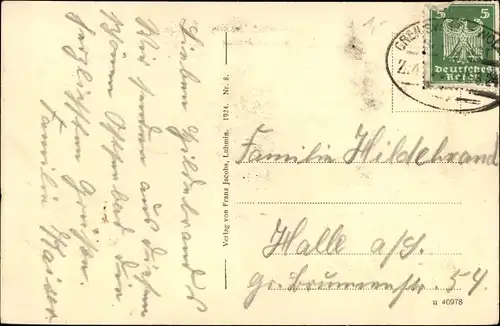 Lieben Hildebrand's
Wir senden aus diesem
schönen Ostseebad die
herzlichsten Grüße.
Familie Kaiser
Verlag von Franz Jacobs, Lubmin. 1924. Nr. 8.
5 5
Deutsches
Reich
Familie Hildebrand
Halle a/S.
gr. Brunnenstr. 54.
u 40978